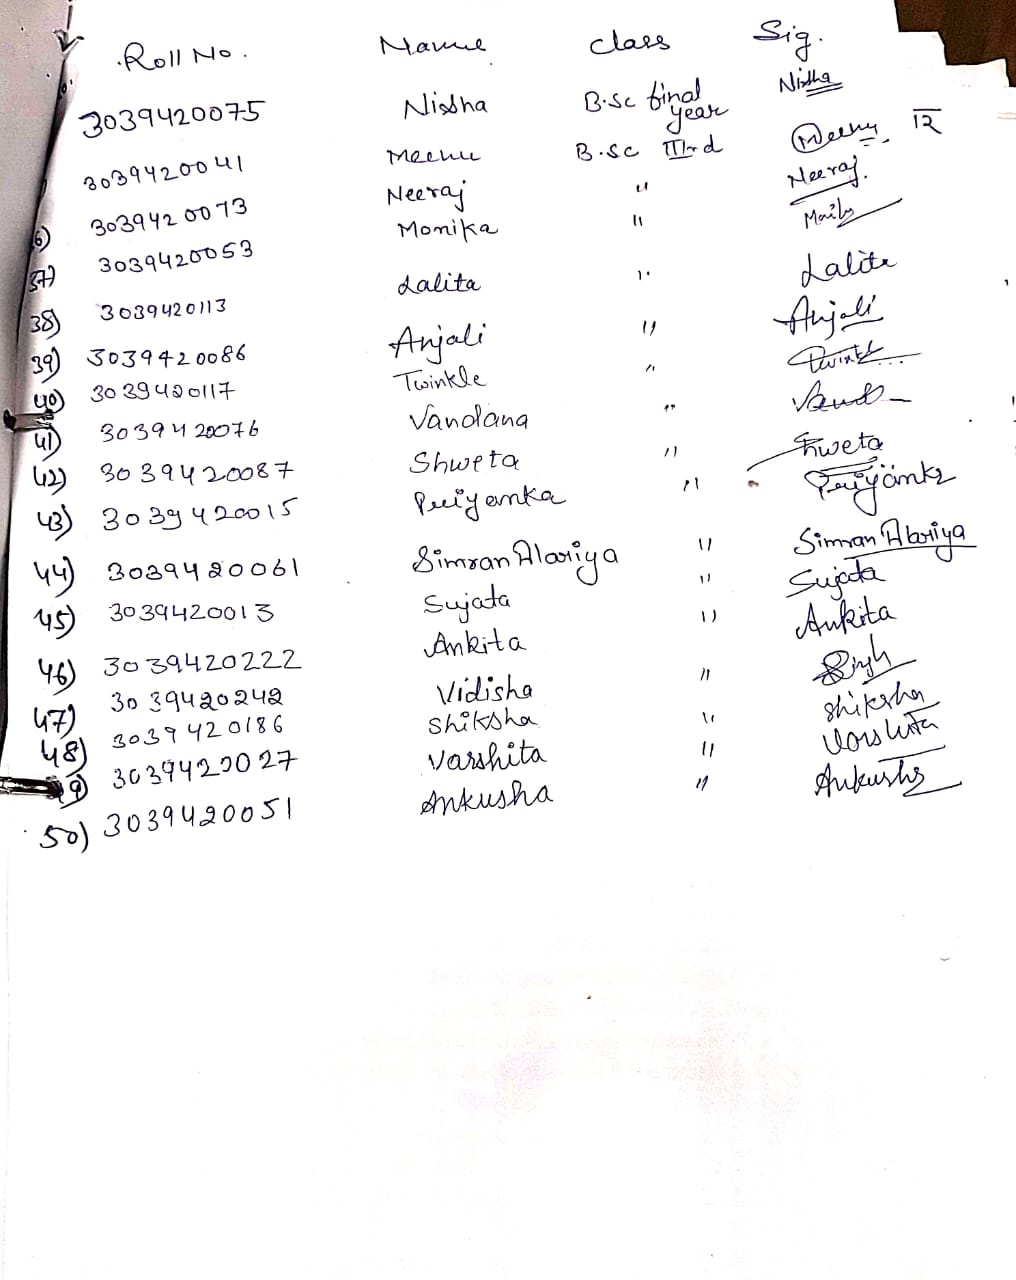 Roll No. Name Class Sig.
3039420075 Nisha B.Sc final year Nisha
3039420041 Meenu B.Sc IIIrd Meenu 12
6) 3039420073 Neeraj " Neeraj.
37) 3039420053 Monika "
38) 3039420113 Lalita " Lalita
39) 3039420086 Anjali " Anjali
40) 3039420117 Twinkle " Twinkle
41) 3039420076 Vandana "
42) 3039420087 Shweta " Shweta
43) 3039420015 Priyanka " Priyanka
44) 3039420061 Simran Alariya " Simran Alariya
45) 3039420013 Sujata " Sujata
46) 3039420222 Ankita " Ankita
47) 3039420242 Vidisha "
48) 3039420186 Shiksha " Shiksha
9) 3039420027 Varshita " Varshita
50) 3039420051 Ankusha " Ankusha